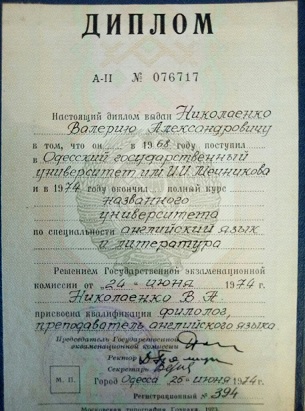 ДИПЛОМ
А-II № 076717
Настоящий диплом выдан Николаенко
Валерию Александровичу
в том, что он в 1968 году поступил
в Одесский государственный
университет им. И.И. Мечникова
и в 1974 году окончил полный курс
названного
университета
по специальности английский язык
и литература
Решением Государственной экзаменационной
комиссии от "24" июня 1974 г.
Николаенко В. А.
присвоена квалификация филолог,
преподаватель английского языка
Председатель Государственной
экзаменационной комиссии
Ректор
Секретарь
М. П. Город Одесса 25 июня 1974 г.
Регистрационный № 394
Московская типография Гознака. 1973.